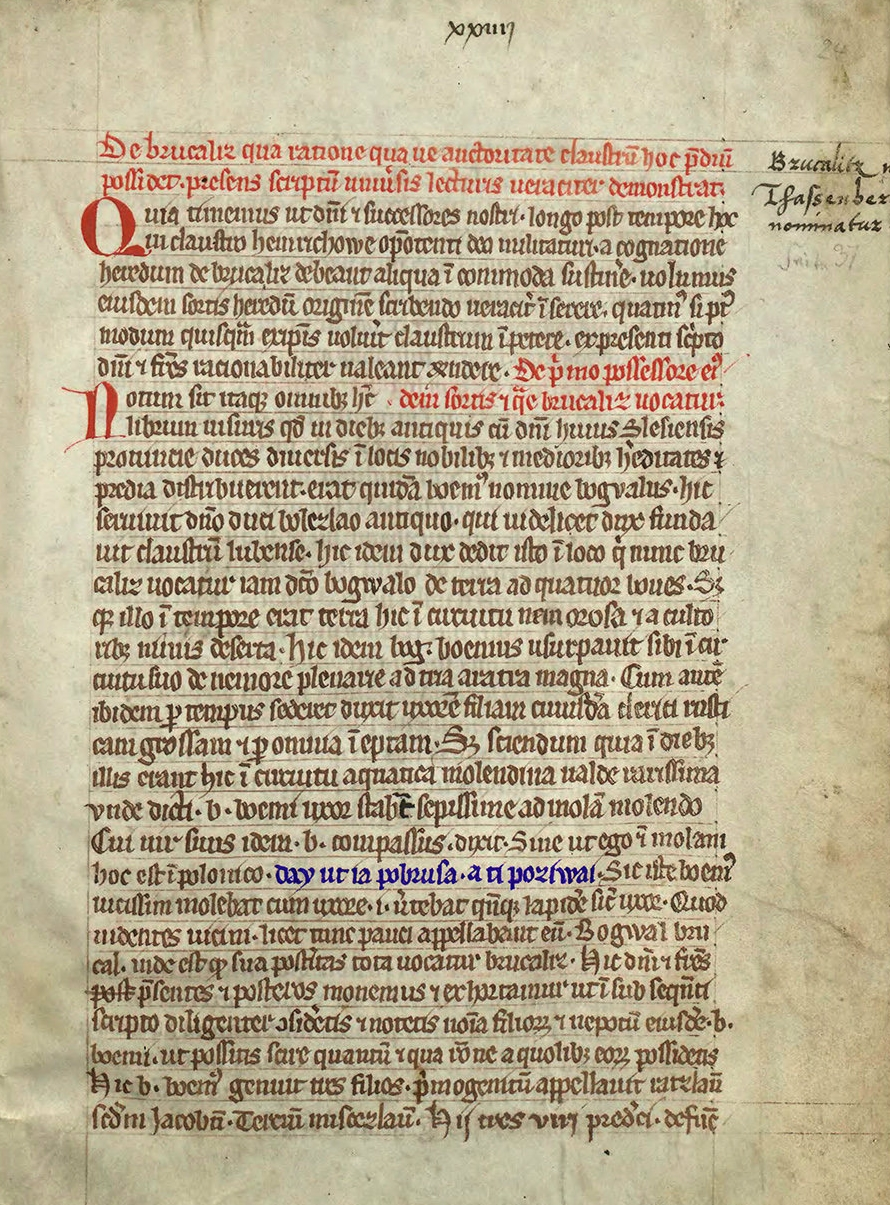 xxiiij
24
De brucaliz qua ratione qua ue auctoritate claustrū hoc p̄diū
possidet. presens scriptū uniūsis lecturis ueraciter demonstrat.
Quia timemus ut dn̄i ⁊ successores nostri. longo post tempore hoc
in claustro heinrichowe op̄otenti deo militaturi. a cognatione
heredum de brucaliz debeant aliqua ī commoda sustinˀe. uolumus
eiusdem sortis heredū originē scribendo ueracitˀ īserere. quatinꝰ si pꝰt
modum quisqm̄ ex ip̄is uoluˀit claustrum īpetere. ex presenti scˀpto
dn̄i ⁊ frēs racionabiliter ualeant rn̄dere. De pˀmo possessore eiꝰ
Notum sit itaqꝫ omnibꝫ hūc dem sortis ⁊ qˀre brucaliz uocatur.
librum uisuris qđ in diebꝫ antiquis cū dn̄i huius Slesiensis
prouincie duces diuersis ī locis nobilibꝫ ⁊ mediocribꝫ h̓editates ⁊
predia distribuerent. erat quidā boemꝰ nomine bogvalus. hic
seruiuit dn̄o duci bolezlao antiquo. qui uidelicet dux funda
uit claustrū lubense. hic idem dux dedit isto ī loco qˀ nunc bru
caliz uocatur iam dc̄o bogwalo de terra ad quatuor boues. Sꝫ
qꝫ illo ī tempore erat terra hic ī circuitu nemorosa ⁊ a culto
ribꝫ nimis deserta. hic idem bog. boemus usurpauit sibi ī cir
cuitu suo de nemore plenarie ad tria aratra magna. Cum autē
ibidem ꝑ tempus sederet duxit uxorē filiam cuiusdā clerici rusti
cam grossam ⁊ ꝑ omnia īeptam. Sꝫ sciendum quia ī diebꝫ
illis erant hic ī circuitu aquatica molendina ualde rarissima
vnde dicti . b . boemi uxor stabat sepissime ad molā molendo
Cui uir suus idem . b . compassus. dixit. Sine ut ego ⁊ molam
hoc est ī polonico. day ut ia pobrusa. a ti poziwai. Sic iste boemꝰ
uicissim molebat cum uxore. ⁊ uˀtebat qn̄qꝫ lapidē sic̄ uxor. Quod
uidentes uicini. licet tunc pauci appellabant eū. Bogwal bru
cal. inde est qꝫ sua posteritas tota uocatur brucaliz. Hic dn̄i ⁊ frēs
post p̄sentes ⁊ posteros monemus ⁊ exhortamur ut ī sub seqn̄ti
scripto diligenter ɔsidˀetis ⁊ notetis noīa filioꝝ ⁊ nepotū eiusdē . b.
boemi. ut possitis scire quantū ⁊ qua rōne a quolibꝫ eoꝝ possidetis
Hic b. boemꝰ genuit tres filios. pˀmogenitū appellauit raczlaū
secˀdm Jacobū. Terciū miscezlaū. Hij tres viri predc̄i. defuncti
Brucalitz
Thassenber
nominatur